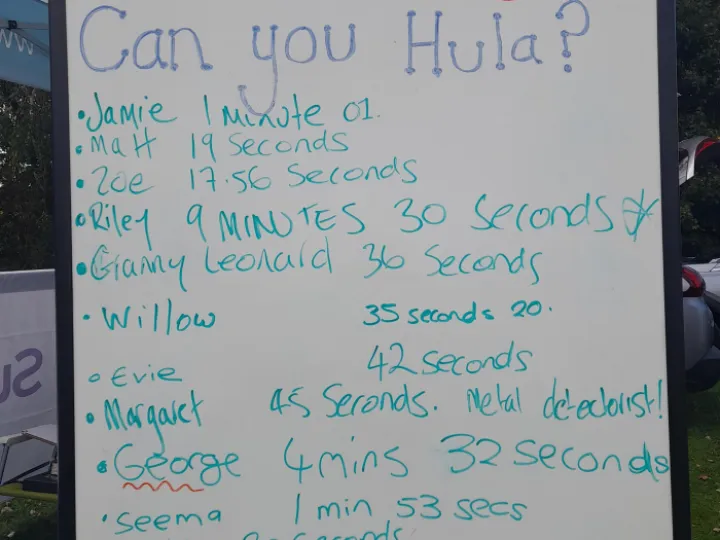 Can you Hula?
•Jamie 1 Minute 01.
•Matt 19 Seconds
•Zoe 17.56 Seconds
•Riley 9 MINUTES 30 Seconds
•Granny Leonard 36 Seconds
•Willow 35 seconds 20.
•Evie 42 seconds
•Margaret 45 Seconds. Metal detectorist!
•George 4 mins 32 seconds
•Seema 1 min 53 secs